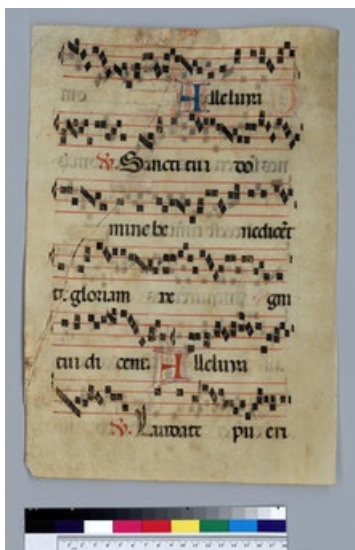 Alleluia
℣. Sancti tui do
mine be nedicẽt
tē. gloriam re gni
tui di cent. Alleluia
℣. Laudate pu eri